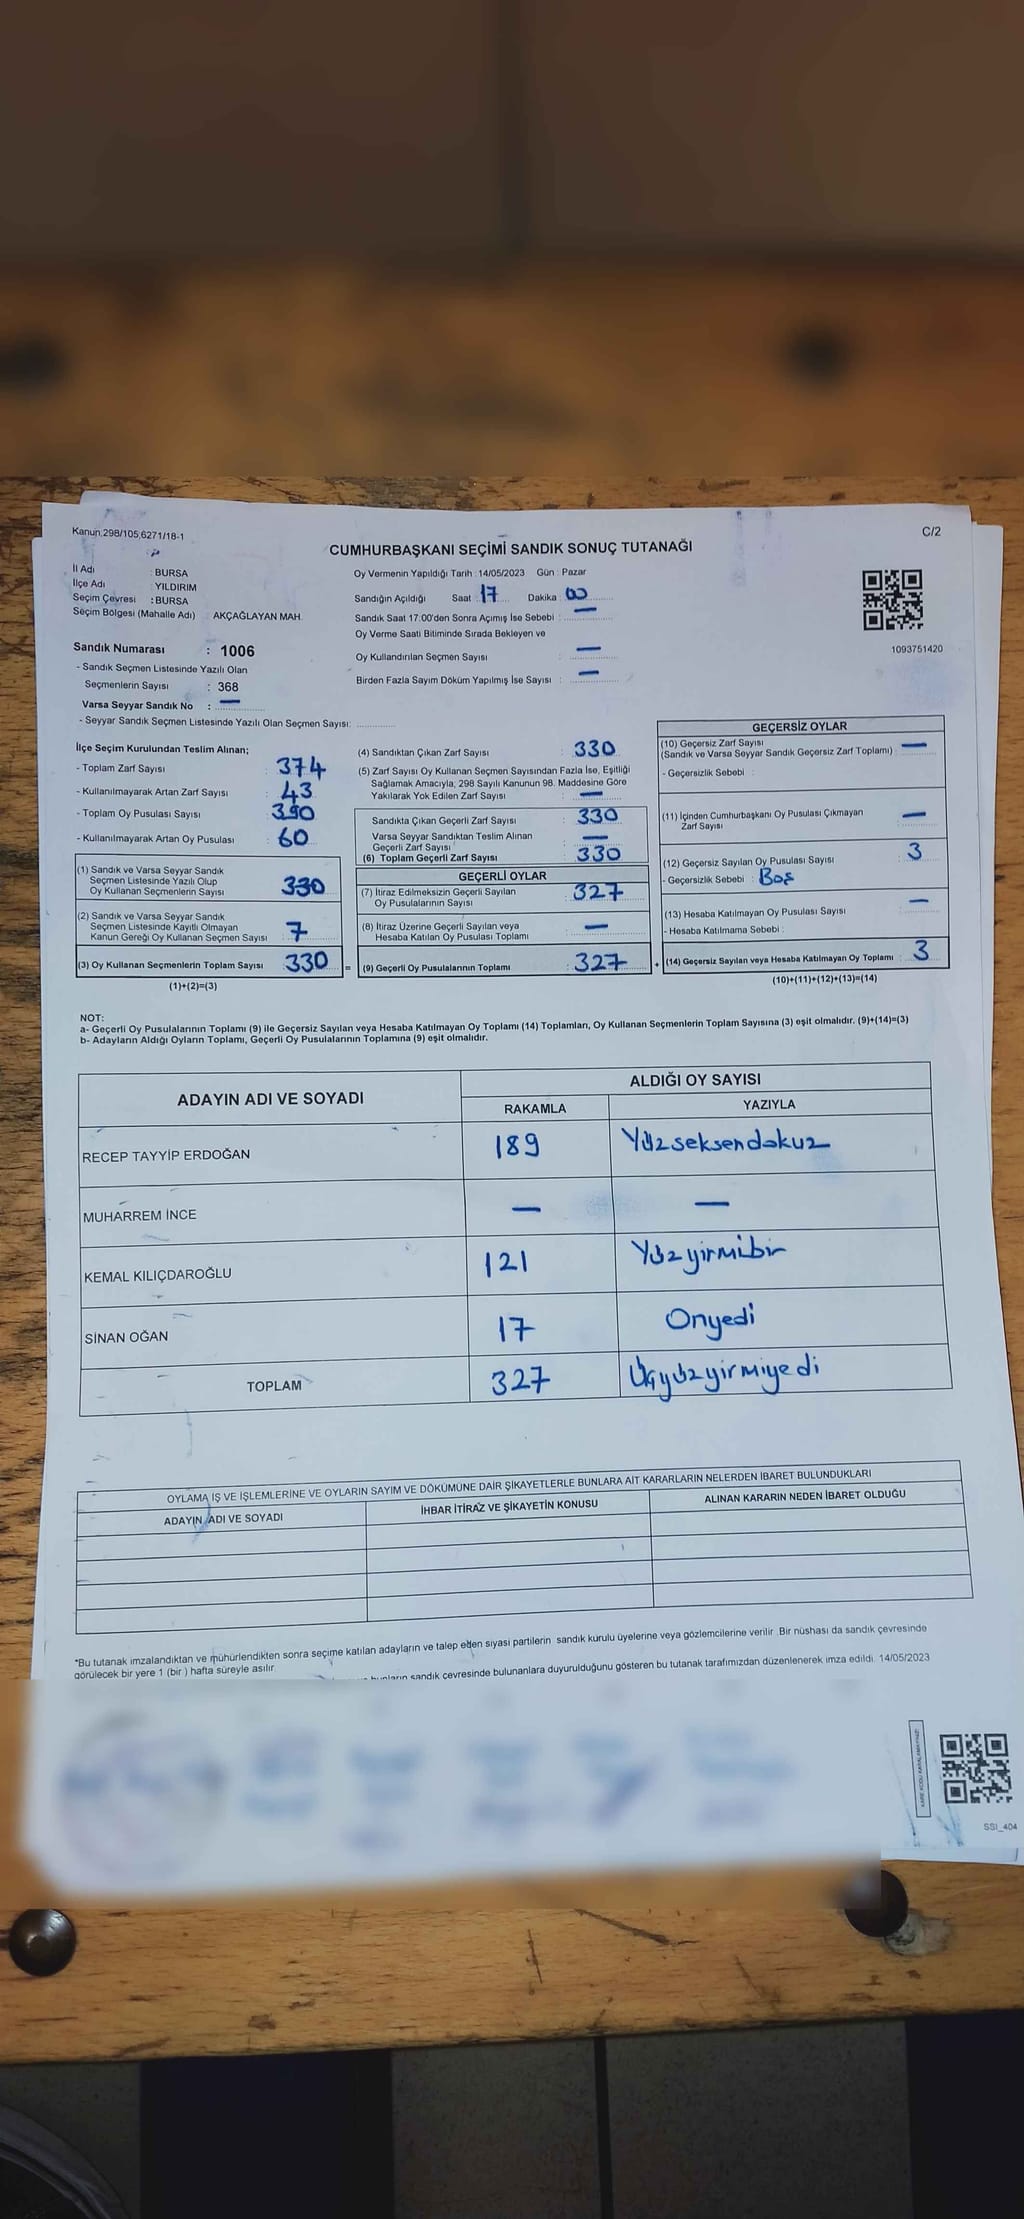 Kanun:298/105,6271/18-1
C/2
CUMHURBAŞKANI SEÇİMİ SANDIK SONUÇ TUTANAĞI
İl Adı : BURSA
İlçe Adı : YILDIRIM
Seçim Çevresi : BURSA
Seçim Bölgesi (Mahalle Adı) AKÇAĞLAYAN MAH.
Sandık Numarası : 1006
- Sandık Seçmen Listesinde Yazılı Olan
Seçmenlerin Sayısı : 368
Varsa Seyyar Sandık No : —
- Seyyar Sandık Seçmen Listesinde Yazılı Olan Seçmen Sayısı:
Oy Vermenin Yapıldığı Tarih : 14/05/2023 Gün : Pazar
Sandığın Açıldığı Saat 17 Dakika 00
Sandık Saat 17:00'den Sonra Açımış İse Sebebi : —
Oy Verme Saati Bitiminde Sırada Bekleyen ve
Oy Kullandırılan Seçmen Sayısı : —
Birden Fazla Sayım Döküm Yapılmış İse Sayısı : —
1093751420
İlçe Seçim Kurulundan Teslim Alınan;
- Toplam Zarf Sayısı : 374
- Kullanılmayarak Artan Zarf Sayısı : 43
- Toplam Oy Pusulası Sayısı : 390
- Kullanılmayarak Artan Oy Pusulası : 60
(1) Sandık ve Varsa Seyyar Sandık
Seçmen Listesinde Yazılı Olup
Oy Kullanan Seçmenlerin Sayısı 330
(2) Sandık ve Varsa Seyyar Sandık
Seçmen Listesinde Kayıtlı Olmayan
Kanun Gereği Oy Kullanan Seçmen Sayısı 7
(3) Oy Kullanan Seçmenlerin Toplam Sayısı 330 =
(1)+(2)=(3)
(4) Sandıktan Çıkan Zarf Sayısı : 330
(5) Zarf Sayısı Oy Kullanan Seçmen Sayısından Fazla İse, Eşitliği
Sağlamak Amacıyla, 298 Sayılı Kanunun 98. Maddesine Göre
Yakılarak Yok Edilen Zarf Sayısı : —
Sandıkta Çıkan Geçerli Zarf Sayısı : 330
Varsa Seyyar Sandıktan Teslim Alınan
Geçerli Zarf Sayısı : —
(6) Toplam Geçerli Zarf Sayısı : 330
GEÇERLİ OYLAR
(7) İtiraz Edilmeksizin Geçerli Sayılan
Oy Pusulalarının Sayısı : 327
(8) İtiraz Üzerine Geçerli Sayılan veya
Hesaba Katılan Oy Pusulası Toplamı : —
(9) Geçerli Oy Pusulalarının Toplamı : 327 +
GEÇERSİZ OYLAR
(10) Geçersiz Zarf Sayısı
(Sandık ve Varsa Seyyar Sandık Geçersiz Zarf Toplamı) : —
- Geçersizlik Sebebi :
(11) İçinden Cumhurbaşkanı Oy Pusulası Çıkmayan
Zarf Sayısı : —
(12) Geçersiz Sayılan Oy Pusulası Sayısı : 3
- Geçersizlik Sebebi : Boş
(13) Hesaba Katılmayan Oy Pusulası Sayısı : —
- Hesaba Katılmama Sebebi :
(14) Geçersiz Sayılan veya Hesaba Katılmayan Oy Toplamı : 3
(10)+(11)+(12)+(13)=(14)
NOT:
a- Geçerli Oy Pusulalarının Toplamı (9) ile Geçersiz Sayılan veya Hesaba Katılmayan Oy Toplamı (14) Toplamları, Oy Kullanan Seçmenlerin Toplam Sayısına (3) eşit olmalıdır. (9)+(14)=(3)
b- Adayların Aldığı Oyların Toplamı, Geçerli Oy Pusulalarının Toplamına (9) eşit olmalıdır.
ADAYIN ADI VE SOYADI
ALDIĞI OY SAYISI
RAKAMLA YAZIYLA
RECEP TAYYİP ERDOĞAN 189 Yüzseksendokuz
MUHARREM İNCE — —
KEMAL KILIÇDAROĞLU 121 Yüzyirmibir
SİNAN OĞAN 17 Onyedi
TOPLAM 327 Üçyüzyirmiyedi
OYLAMA İŞ VE İŞLEMLERİNE VE OYLARIN SAYIM VE DÖKÜMÜNE DAİR ŞİKAYETLERLE BUNLARA AİT KARARLARIN NELERDEN İBARET BULUNDUKLARI
ADAYIN ADI VE SOYADI İHBAR İTİRAZ VE ŞİKAYETİN KONUSU ALINAN KARARIN NEDEN İBARET OLDUĞU
*Bu tutanak imzalandıktan ve mühürlendikten sonra seçime katılan adayların ve talep eden siyasi partilerin sandık kurulu üyelerine veya gözlemcilerine verilir. Bir nüshası da sandık çevresinde
görülecek bir yere 1 (bir ) hafta süreyle asılır.
sandık çevresinde bulunanlara duyurulduğunu gösteren bu tutanak tarafımızdan düzenlenerek imza edildi. 14/05/2023
SSI_404